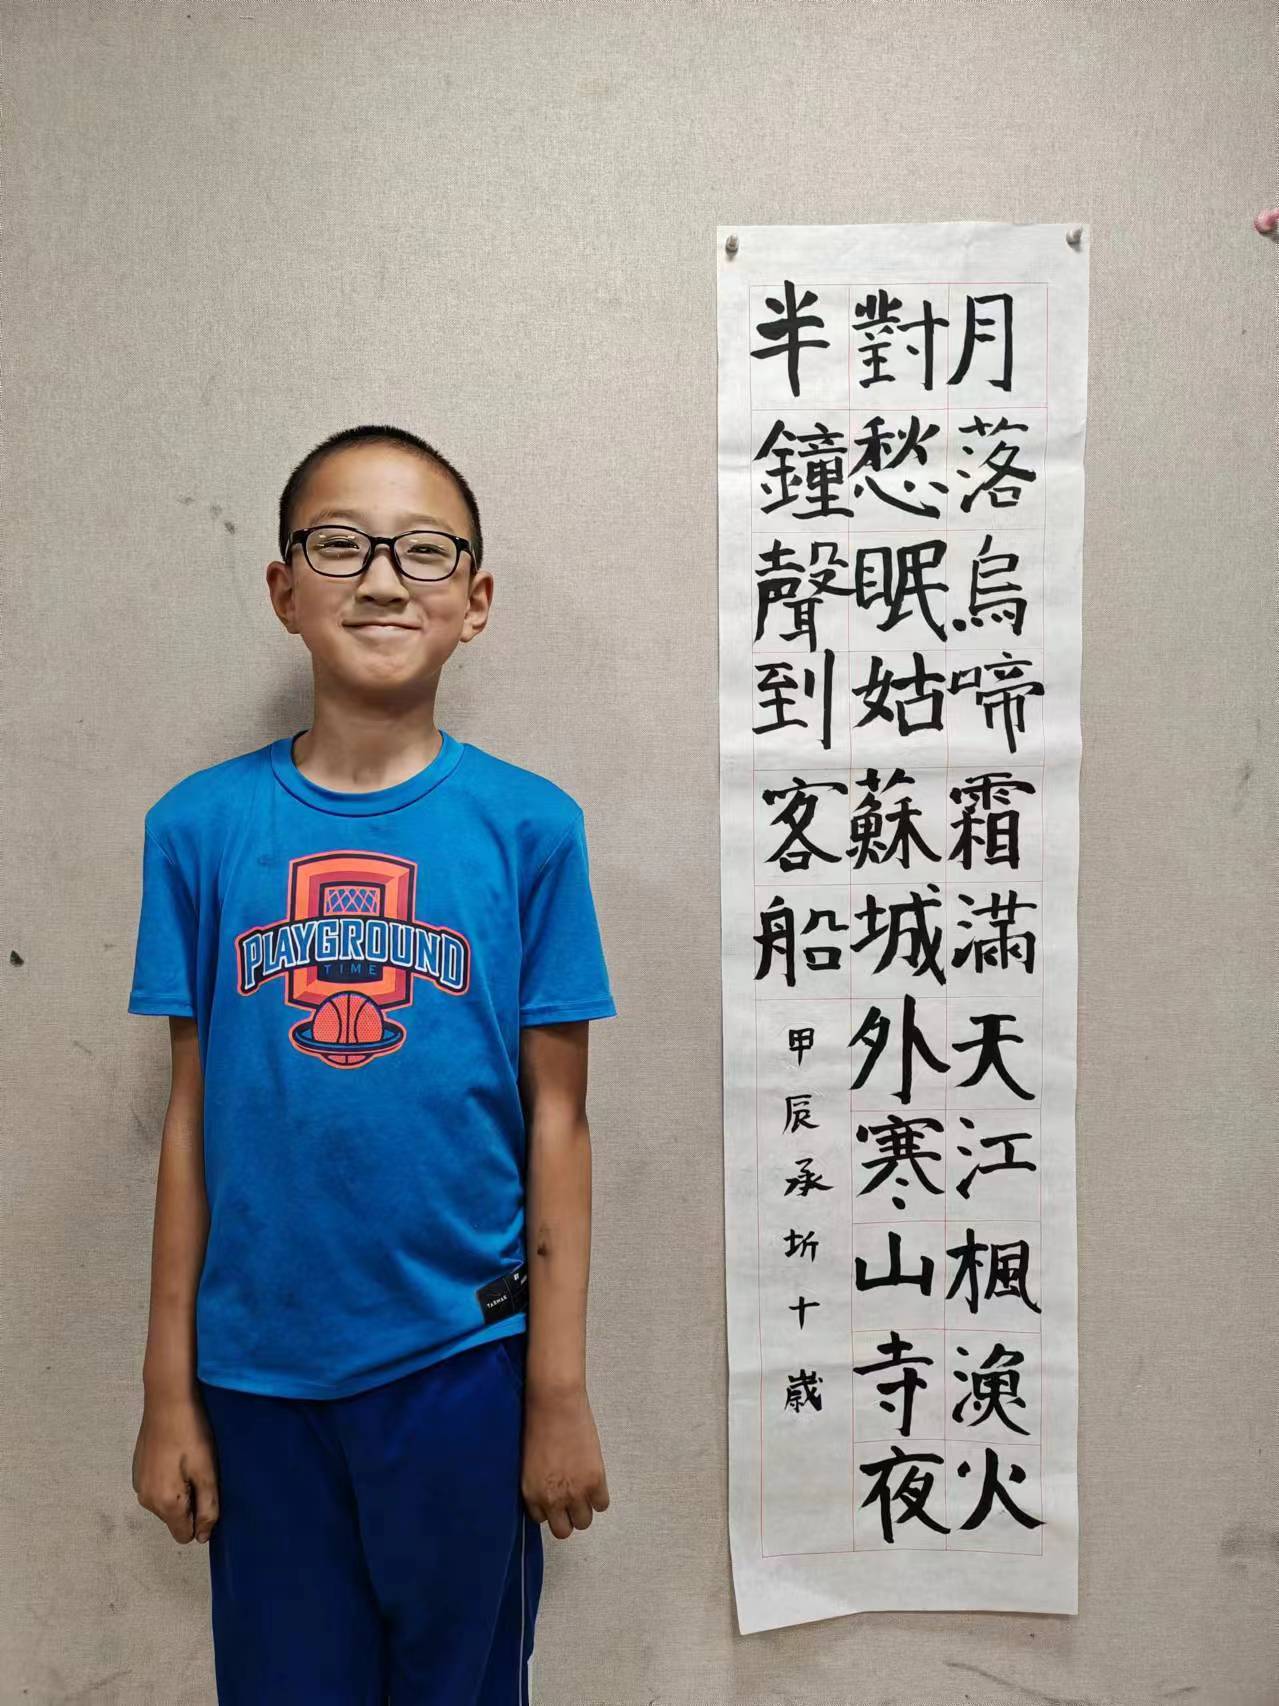 月落烏啼霜滿天江楓漁火
對愁眠姑蘇城外寒山寺夜
半鐘聲到客船
甲辰承圻十歲
PLAYGROUND
TIME